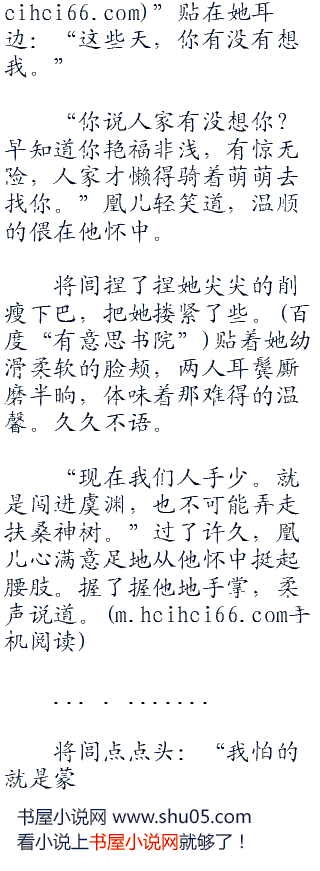 cihci66.com)”贴在她耳
边：“这些天，你有没有想
我。”
“你说人家有没想你？
早知道你艳福非浅，有惊无
险，人家才懒得骑着萌萌去
找你。”凰儿轻笑道，温顺
的偎在他怀中。
将闾捏了捏她尖尖的削
瘦下巴，把她搂紧了些。(百
度“有意思书院”)贴着她幼
滑柔软的脸颊，两人耳鬓厮
磨半晌，体味着那难得的温
馨。久久不语。
“现在我们人手少。就
是闯进虞渊，也不可能弄走
扶桑神树。”过了许久，凰
儿心满意足地从他怀中挺起
腰肢。握了握他地手掌，柔
声说道。(m.hcihci66.com手
机阅读)
... . .......
将闾点点头：“我怕的
就是蒙
书屋小说网 www.shu05.com
看小说上书屋小说网就够了！